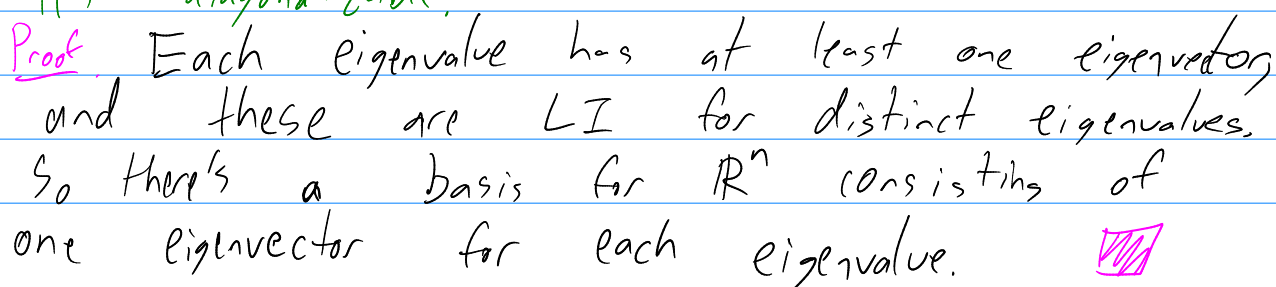 Proof. Each eigenvalue has at least one eigenvector,
and these are LI for distinct eigenvalues.
So there's a basis for ℝⁿ consisting of
one eigenvector for each eigenvalue.